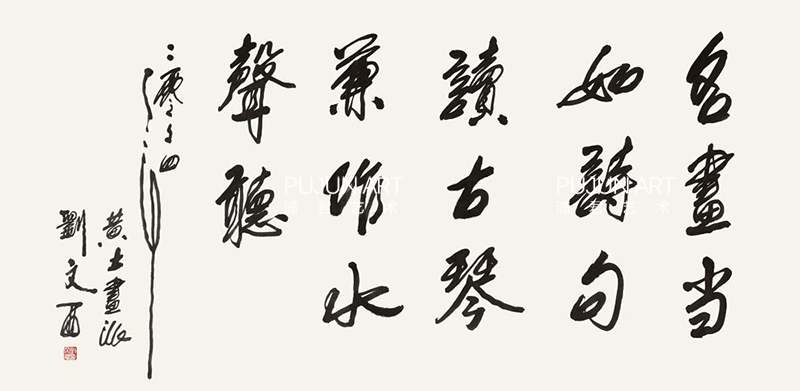 名畫当
如詩句
讀古琴
兼作水
聲聽
二零零四年
黄土畫派
劉文西
PUJUN ART
浦君艺术
PUJUN ART
浦君艺术